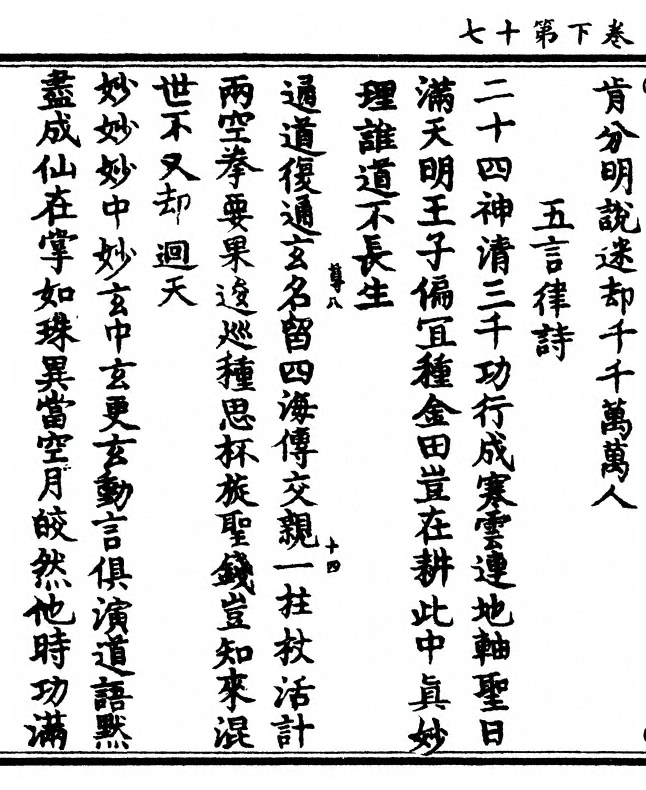 卷下第十七
肯分明說迷却千千萬萬人
五言律詩
二十四神清三千功行成寒雲連地軸聖日
滿天明王子偏冝種金田豈在耕此中眞妙
理誰道不長生
尊八
十四
通道復通玄名留四海傳交親一拄杖活計
兩空拳要果逡巡種思杯旋聖錢豈知來混
世不又却迴天
妙妙妙中妙玄中玄更玄動言俱演道語默
盡成仙在掌如珠異當空月皎然他時功滿